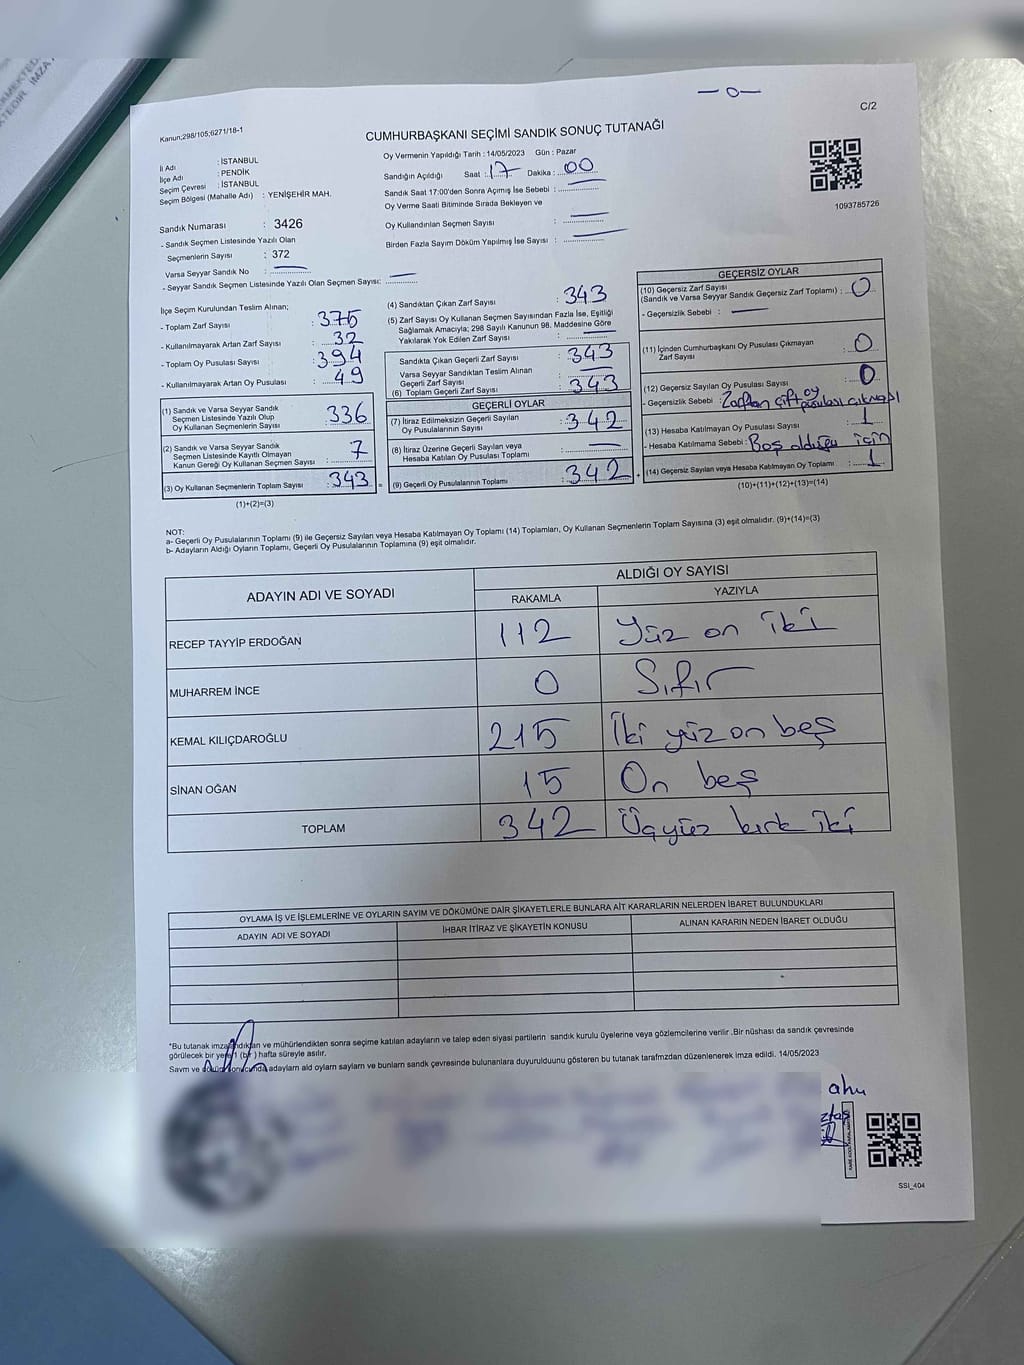 — 0 —
C/2
Kanun:298/105;6271/18-1
CUMHURBAŞKANI SEÇİMİ SANDIK SONUÇ TUTANAĞI
İl Adı : İSTANBUL
İlçe Adı : PENDİK
Seçim Çevresi : İSTANBUL
Seçim Bölgesi (Mahalle Adı) : YENİŞEHİR MAH.
Oy Vermenin Yapıldığı Tarih : 14/05/2023 Gün : Pazar
Sandığın Açıldığı Saat : 17 Dakika : 00
Sandık Saat 17:00'den Sonra Açımış İse Sebebi : —
Oy Verme Saati Bitiminde Sırada Bekleyen ve
Oy Kullandırılan Seçmen Sayısı : —
Birden Fazla Sayım Döküm Yapılmış İse Sayısı : —
1093785726
Sandık Numarası : 3426
- Sandık Seçmen Listesinde Yazılı Olan
Seçmenlerin Sayısı : 372
Varsa Seyyar Sandık No : —
- Seyyar Sandık Seçmen Listesinde Yazılı Olan Seçmen Sayısı: —
İlçe Seçim Kurulundan Teslim Alınan;
- Toplam Zarf Sayısı : 375
- Kullanılmayarak Artan Zarf Sayısı : 32
- Toplam Oy Pusulası Sayısı : 394
- Kullanılmayarak Artan Oy Pusulası : 49
(1) Sandık ve Varsa Seyyar Sandık
Seçmen Listesinde Yazılı Olup
Oy Kullanan Seçmenlerin Sayısı : 336
(2) Sandık ve Varsa Seyyar Sandık
Seçmen Listesinde Kayıtlı Olmayan
Kanun Gereği Oy Kullanan Seçmen Sayısı : 7
(3) Oy Kullanan Seçmenlerin Toplam Sayısı : 343
(1)+(2)=(3)
(4) Sandıktan Çıkan Zarf Sayısı : 343
(5) Zarf Sayısı Oy Kullanan Seçmen Sayısından Fazla İse, Eşitliği
Sağlamak Amacıyla; 298 Sayılı Kanunun 98. Maddesine Göre
Yakılarak Yok Edilen Zarf Sayısı : —
Sandıkta Çıkan Geçerli Zarf Sayısı : 343
Varsa Seyyar Sandıktan Teslim Alınan
Geçerli Zarf Sayısı : —
(6) Toplam Geçerli Zarf Sayısı : 343
GEÇERLİ OYLAR
(7) İtiraz Edilmeksizin Geçerli Sayılan
Oy Pusulalarının Sayısı : 342
(8) İtiraz Üzerine Geçerli Sayılan veya
Hesaba Katılan Oy Pusulası Toplamı : —
(9) Geçerli Oy Pusulalarının Toplamı : 342
GEÇERSİZ OYLAR
(10) Geçersiz Zarf Sayısı
(Sandık ve Varsa Seyyar Sandık Geçersiz Zarf Toplamı) : 0
- Geçersizlik Sebebi : —
(11) İçinden Cumhurbaşkanı Oy Pusulası Çıkmayan
Zarf Sayısı : 0
(12) Geçersiz Sayılan Oy Pusulası Sayısı : 0
- Geçersizlik Sebebi : Zarftan çift oy pusulası çıkması
(13) Hesaba Katılmayan Oy Pusulası Sayısı : 1
- Hesaba Katılmama Sebebi : Boş olduğu için
(14) Geçersiz Sayılan veya Hesaba Katılmayan Oy Toplamı : 1
(10)+(11)+(12)+(13)=(14)
NOT:
a- Geçerli Oy Pusulalarının Toplamı (9) ile Geçersiz Sayılan veya Hesaba Katılmayan Oy Toplamı (14) Toplamları, Oy Kullanan Seçmenlerin Toplam Sayısına (3) eşit olmalıdır. (9)+(14)=(3)
b- Adayların Aldığı Oyların Toplamı, Geçerli Oy Pusulalarının Toplamına (9) eşit olmalıdır.
ADAYIN ADI VE SOYADI
ALDIĞI OY SAYISI
RAKAMLA YAZIYLA
RECEP TAYYİP ERDOĞAN 112 Yüz on iki
MUHARREM İNCE 0 Sıfır
KEMAL KILIÇDAROĞLU 215 İki yüz on beş
SİNAN OĞAN 15 On beş
TOPLAM 342 Üçyüz kırk iki
OYLAMA İŞ VE İŞLEMLERİNE VE OYLARIN SAYIM VE DÖKÜMÜNE DAİR ŞİKAYETLERLE BUNLARA AİT KARARLARIN NELERDEN İBARET BULUNDUKLARI
ADAYIN ADI VE SOYADI İHBAR İTİRAZ VE ŞİKAYETİN KONUSU ALINAN KARARIN NEDEN İBARET OLDUĞU
*Bu tutanak imzalandıktan ve mühürlendikten sonra seçime katılan adayların ve talep eden siyasi partilerin sandık kurulu üyelerine veya gözlemcilerine verilir .Bir nüshası da sandık çevresinde
görülecek bir yere 1 (bir ) hafta süreyle asılır.
Sayım ve döküm sonucunda adayların aldı oyların sayıları ve bunların sandık çevresinde bulunanlara duyurulduunu gösteren bu tutanak tarafımzdan düzenlenerek imza edildi. 14/05/2023
ahu
ztaş
SSI_404